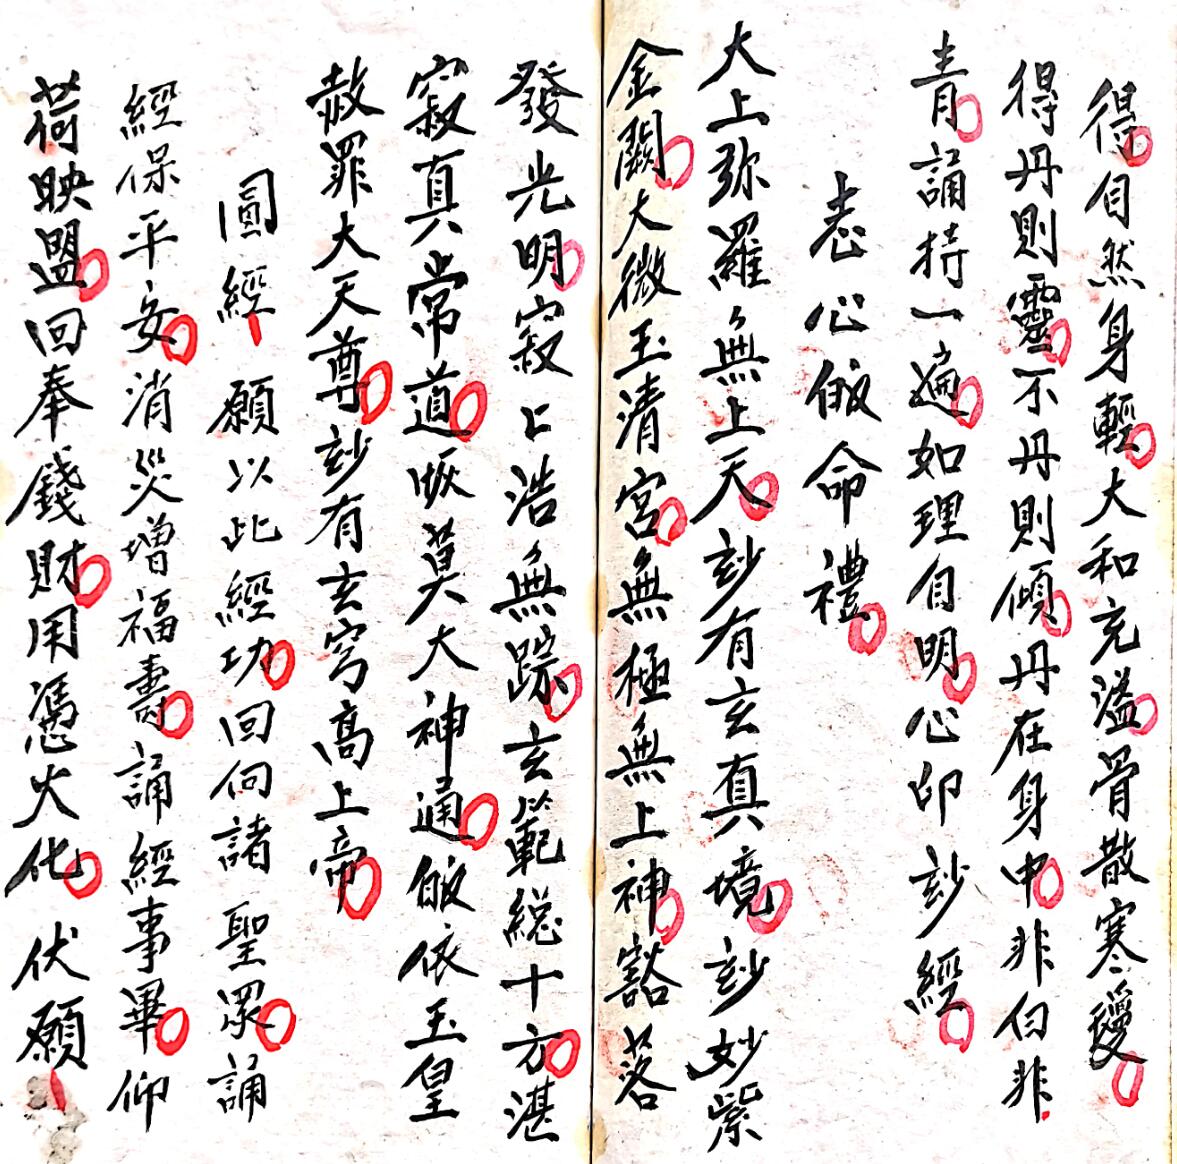 得自然身輕大和充溢骨散寒瓊
得丹則靈不丹則傾丹在身中非白非
青誦持一遍如理自明心印玅經
志心皈命禮
大上弥羅無上天玅有玄真境玅妙紫
金闕大微玉清宮無極無上神豁落
發光明寂〻浩無踪玄範総十方湛
寂真常道恢莫大神通皈依玉皇
赦罪大天尊玅有玄穹高上帝
圓經 願以此經功回向諸聖眾誦
經保平安消災增福壽誦經事畢仰
荷映盟回奉錢財用馮火化伏願